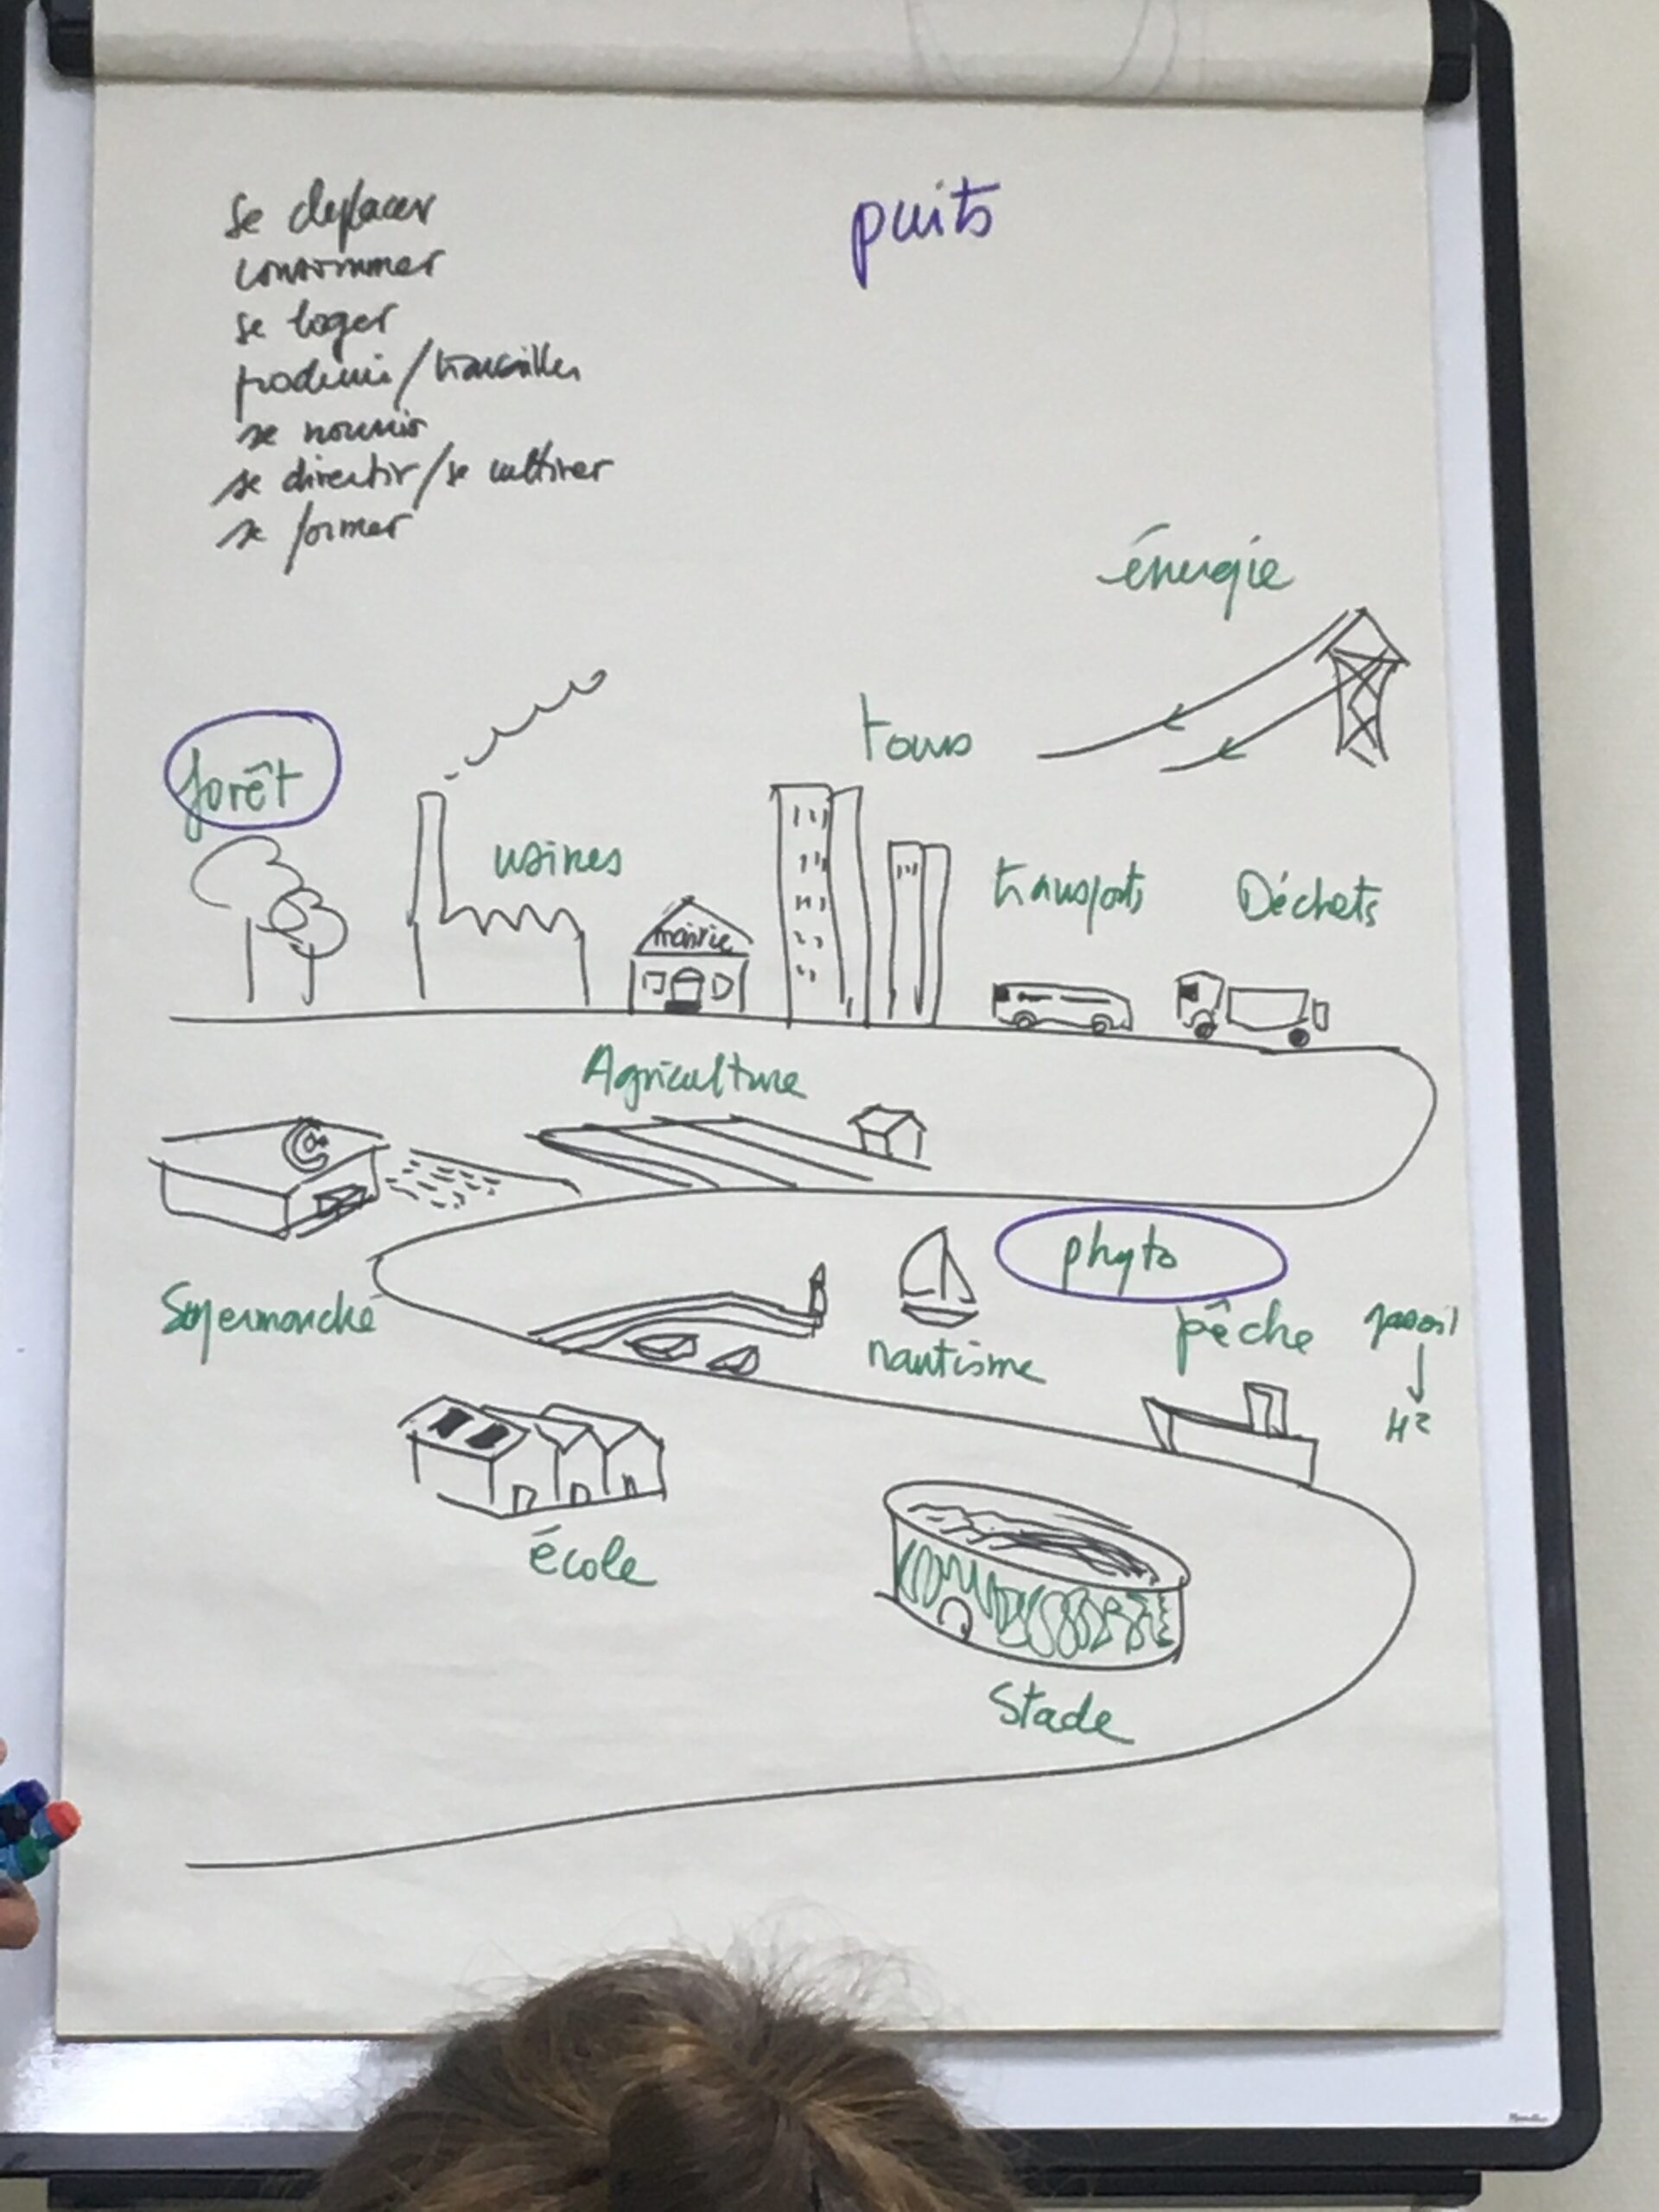 se deplacer
consommer
se loger
produire/travailler
se nourrir
se divertir/se cultiver
se former
puits
énergie
forêt
usines
mairie
tours
transports
Déchets
Agriculture
Supermarché
phyto
nautisme
pêche
gasoil
H2
école
Stade